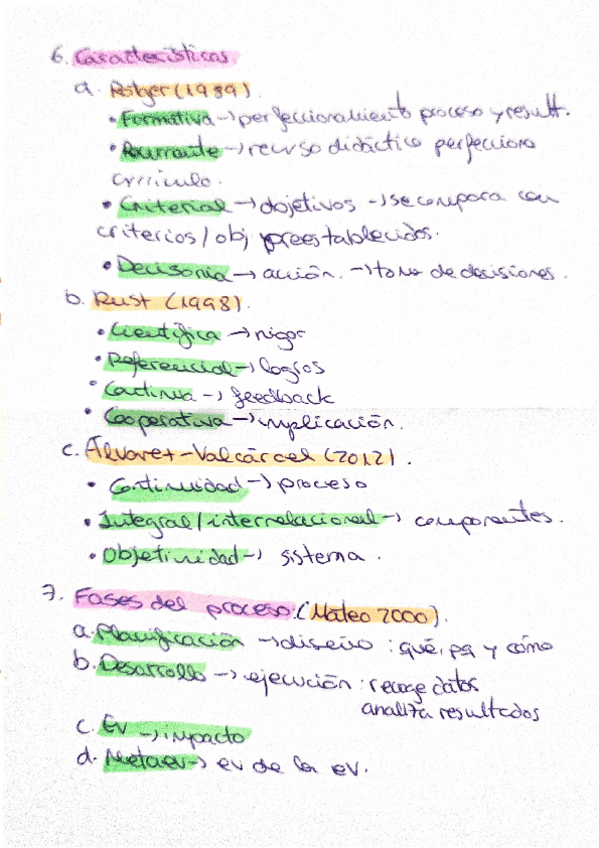 6. Características.
a. Rotger (1989).
• Formativa → perfeccionamiento proceso y result.
• Recurrente → recurso didáctico perfecciona
currículo.
• Criterial → objetivos → se compara con
criterios / obj preestablecidos.
• Decisoria → acción. → toma de decisiones.
b. Rust (1998).
• Científica → rigor
• Referencial → logros
• Continua → feedback
• Cooperativa → implicación.
c. Álvarez-Valcárcel (2012).
• Continuidad → proceso
• Integral / interrelacional → componentes.
• Objetividad → sistema.
7. Fases del proceso: (Mateo 2000).
a. Planificación → diseño: qué, pq y cómo
b. Desarrollo → ejecución: recoge datos
analiza resultados
c. Ev → impacto
d. Metaev → ev de la ev.